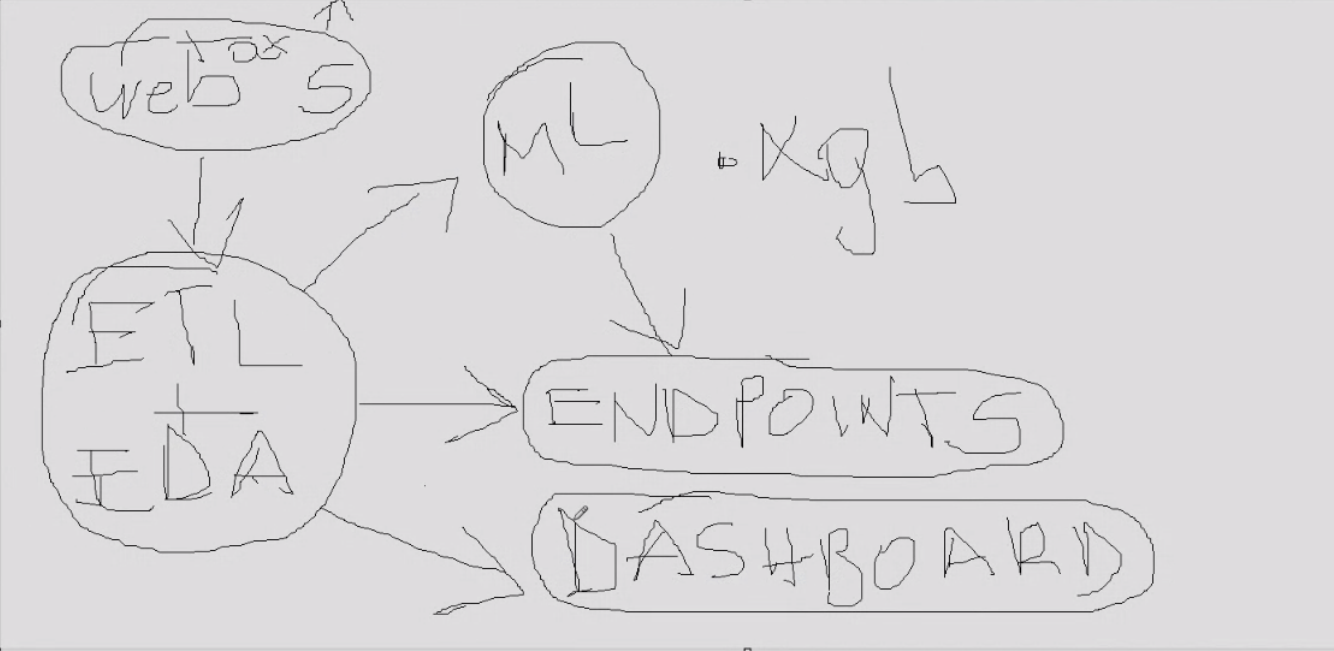 ML
.xgb
ETL
+
EDA
ENDPOINTS
DASHBOARD